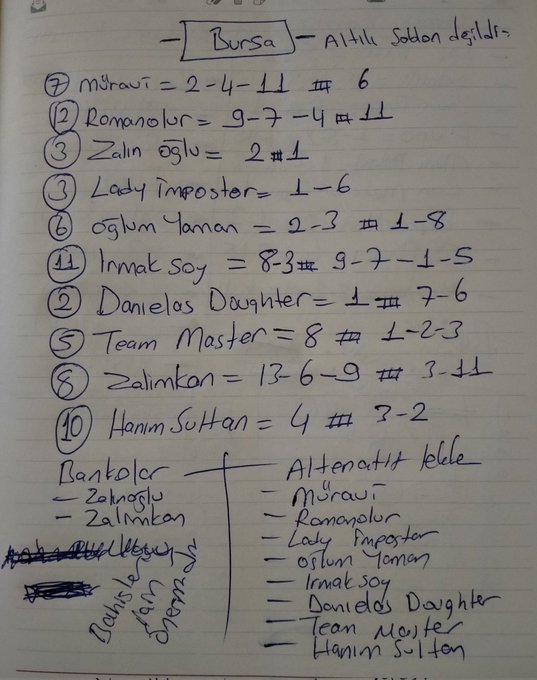 - Bursa - Altılı Sabton değildi-
⑦ Müravi = 2-4-11 # 6
⑫ Romanolur = 9-7-4 # 11
③ Zalin oğlu = 2 # 1
③ Lady İmpostor = 1-6
⑥ oğlum Yaman = 2-3 # 1-8
⑪ Irmak soy = 8-3 # 9-7-1-5
② Danıelas Doughter = 1 # 7-6
⑤ Team Master = 8 # 1-2-3
⑧ Zalimkan = 13-6-9 # 3-11
⑩ Hanım Sultan = 4 # 3-2
Bankolar
- Zalınoğlu
- Zalimkan
Bahisler
Altenatif tekle
- Müravi
- Romanolur
- Lady İmpostor
- oğlum Yaman
- Irmak soy
- Danıelas Doughter
- Team Master
- Hanım Sultan